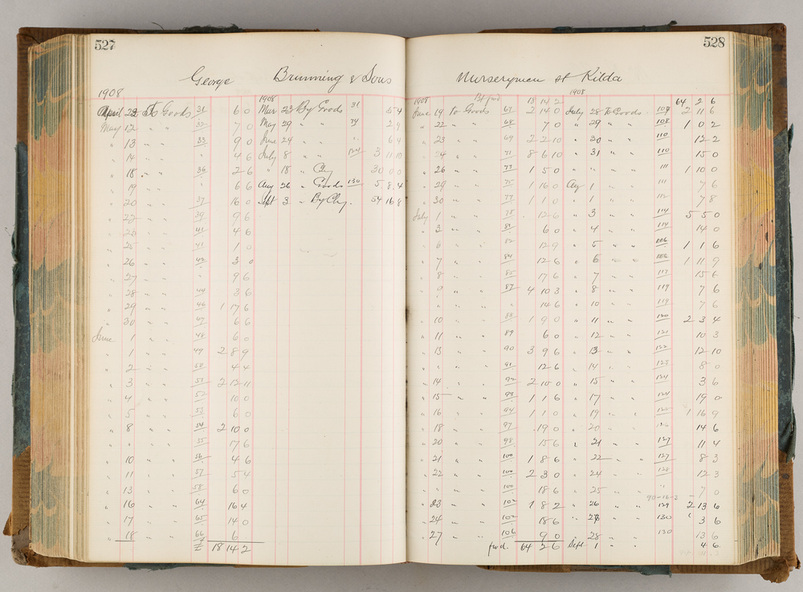 527
George Brunning & Sons
1908
April 22 To Goods 31 6 0
May 12 " " 32 7 0
13 " " 33 9 0
" " " 4 6
18 " " 36 2 6
19 " " 6 6
20 " " 16 0
22 " " 9 6
23 " " 4 6
25 " " 1 0
26 " " 3 0
27 " " 9 6
28 " " 3 6
29 " " 1 7 6
30 " " 6 6
June 1 " " 48 6 0
1 " " 49 2 8 9
2 " " 4 4
3 " " 2 12 11
4 " " 10 0
5 " " 6 0
8 " " 54 2 10 0
" " " 55 17 6
10 " " 56 4 6
11 " " 57 5 4
13 " " 58 6 0
16 " " 64 16 4
17 " " 65 14 0
18 " " 66 6
£ 18 14 2
1908
Mar 23 By Goods 31 5 4
May 29 " " 2 9
June 24 " " 6 4
July 8 " " 3
" 18 " Chq 30 0 0
Aug 26 " Goods 130 5 8 4
Sept 3 " By Chq. 54 16 8
528
Nurserymen St Kilda
1908
18 14 2
June 19 To Goods 67 2 14 0
22 " " 68 7 0
23 " " 69 2 2 10
24 " " 8 6 10
26 " " 1 5 0
29 " " 1 16 0
30 " " 1 1 0
July 1 " " 12 6
2 " " 6 0
3 " " 12 9
7 " " 12 6
8 " " 17 6
9 " " 4 10 3
" " " 14 6
10 " " 1 9 0
11 " " 89 6 0
13 " " 90 3 9 6
" " " 91 12 6
14 " " 2 10 0
15 " " 1 1 6
16 " " 94 1 1 0
18 " " 97 19 0
20 " " 98 15 6
21 " " 100 1 8 6
22 " " 100 2 3 0
" " " 100 18 6
23 " " 102 1 8 2
24 " " 102 18 6
27 " " 106 9 0
fwd. 64 2 6
1908
64 2 6
July 28 To Goods 108 2 11 6
" 29 " " 108 1 0 2
" 30 " " 110 12 2
" 31 " " 110 15 0
" " " 111 1 10 0
Aug 1 " " 111 7 6
" 1 " " 112 7 8
" 3 " " 114 5 5 0
" 4 " " 114 14 0
" 5 " " 1 1 6
" 6 " " 1 11 9
" 7 " " 15 6
" 8 " " 119 7 6
" 10 " " 119 7 6
" 11 " " 120 2 3 4
" 12 " " 10 3
" 13 " " 12 10
" 14 " " 8 0
" 15 " " 124 3 6
" 17 " " 19 0
" 19 " " 1 16 9
20 " " 14 6
" 21 " " 127 11 4
" 22 " " 127 8 3
" 24 " " 12 3
" 25 " " 7 0
" 26 " " 129 2 13 6
" 28 " " 130 3 6
" 28 " " 130 13 6
Sept 1 " " 4 6